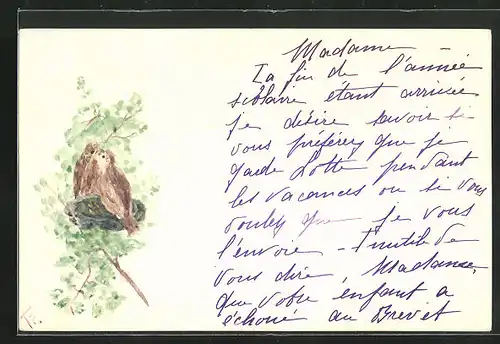 Madame
La fin de l'année
scolaire étant arrivée
je désire savoir si
vous préférez que je
garde Lotte pendant
les vacances ou si vous
voulez que je vous
l'envoie - Inutile de
vous dire, Madame,
que votre enfant a
échoué au Brevet